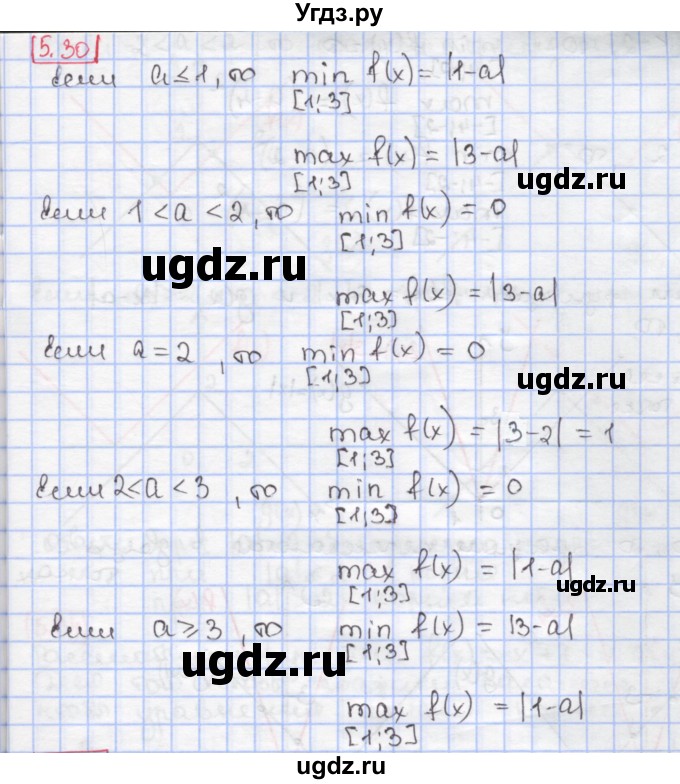 Угдз.ру
5.30
Если a ≤ 1, то min f(x) = |1-a|
[1;3]
max f(x) = |3-a|
[1;3]
ugdz.ru
Если 1 < a < 2, то min f(x) = 0
[1;3]
ugdz.ru
max f(x) = |3-a|
[1;3]
Если a = 2, то min f(x) = 0
[1;3]
ugdz.ru
max f(x) = |3-2| = 1
[1;3]
Если 2 < a < 3, то min f(x) = 0
[1;3]
max f(x) = |1-a|
[1;3]
ugdz.ru
Если a ⩾ 3, то min f(x) = |3-a|
[1;3]
ugdz.ru
max f(x) = |1-a|
[1;3]